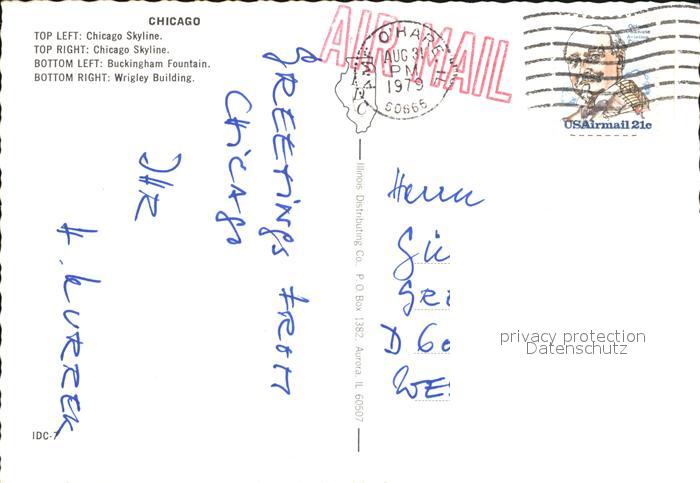 CHICAGO
TOP LEFT: Chicago Skyline.
TOP RIGHT: Chicago Skyline.
BOTTOM LEFT: Buckingham Fountain.
BOTTOM RIGHT: Wrigley Building.
GREETINGS FROM
CHICAGO
IHR
IDC-7
Illinois Distributing Co. P O Box 1382, Aurora, IL 60507
AIR MAIL
O'HARE
AUG 31
PM
1979
60666
USAirmail 21c
Herrn
D 60
WE
privacy protection
Datenschutz